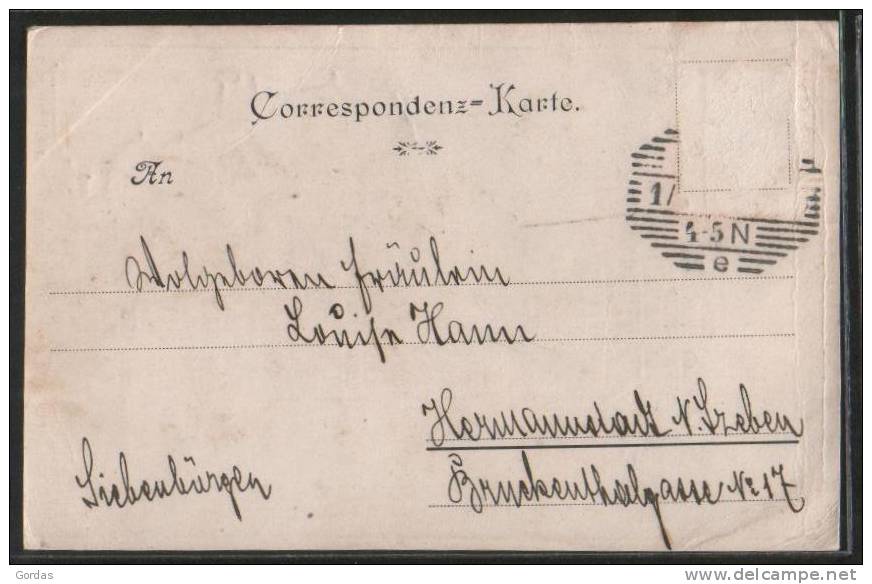 Correspondenz-Karte.
An
1/
4-5 N
e
Wolgeboren Fräulein
Louise Hann
Hermannstadt N. Szeben
Siebenbürgen
Bruckenthalgasse No 17
Gordas
www.delcampe.net